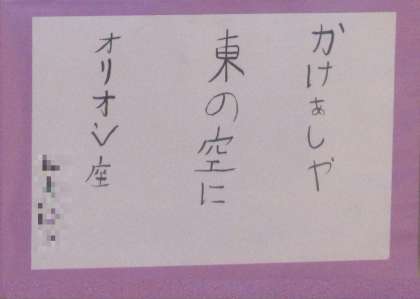 かけぁしや
東の空に
オリオン座